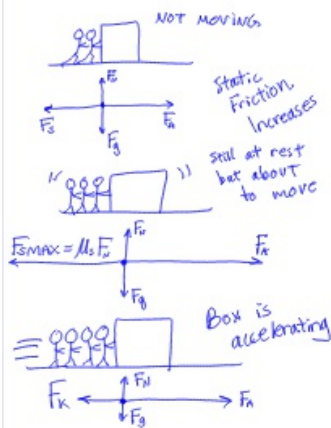 NOT MOVING
FN
Fs
FA
Fg
Static
Friction
Increases
Still at rest
but about
to move
FN
FSMAX = μsFN
FA
Fg
Box is
accelerating
FN
FK
FA
Fg